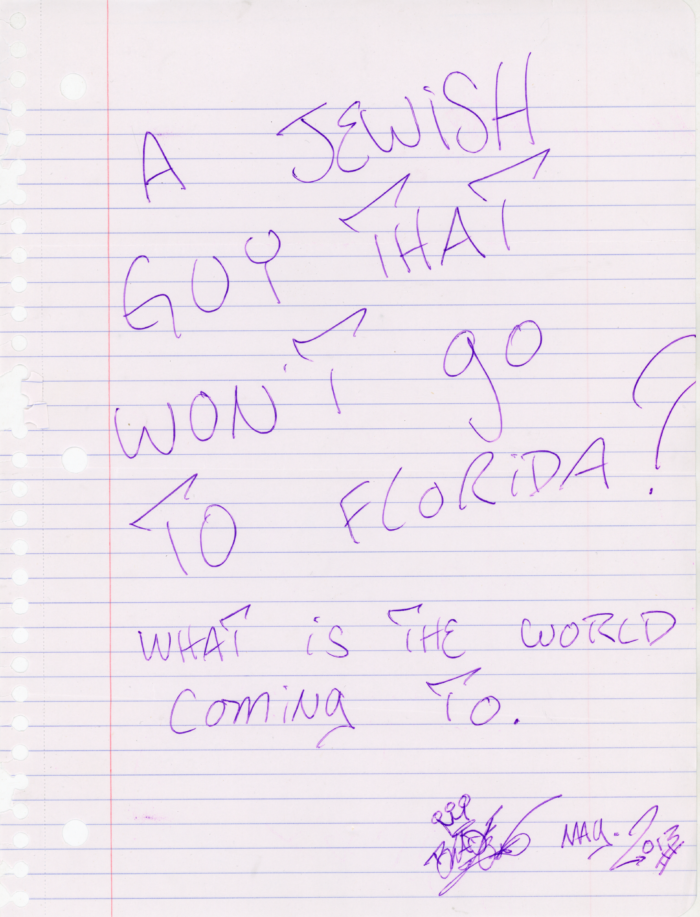 A JEWiSH
GUY THAT
WON'T go
TO FLORiDA?
WHAT iS THE WORLD
COMiNg TO.
MAY. 2013